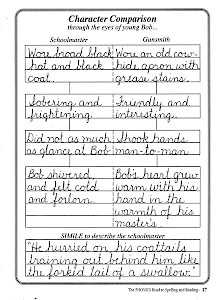 Character Comparison
through the eyes of young Bob...
Schoolmaster Gunsmith
Wore broad black Wore an old cow-
hat and black hide apron with
coat. grease stains.
Sobering and Friendly and
frightening. interesting.
Did not as much Shook hands
as glance at Bob. man-to-man.
Bob shivered Bob's heart grew
and felt cold warm with his
and forlorn. hand in the
warmth of his
master's.
SIMILE to describe the schoolmaster
"He hurried on his coattails
training out behind him like
the forked tail of a swallow."
The PHONICS Road to Spelling and Reading - 17